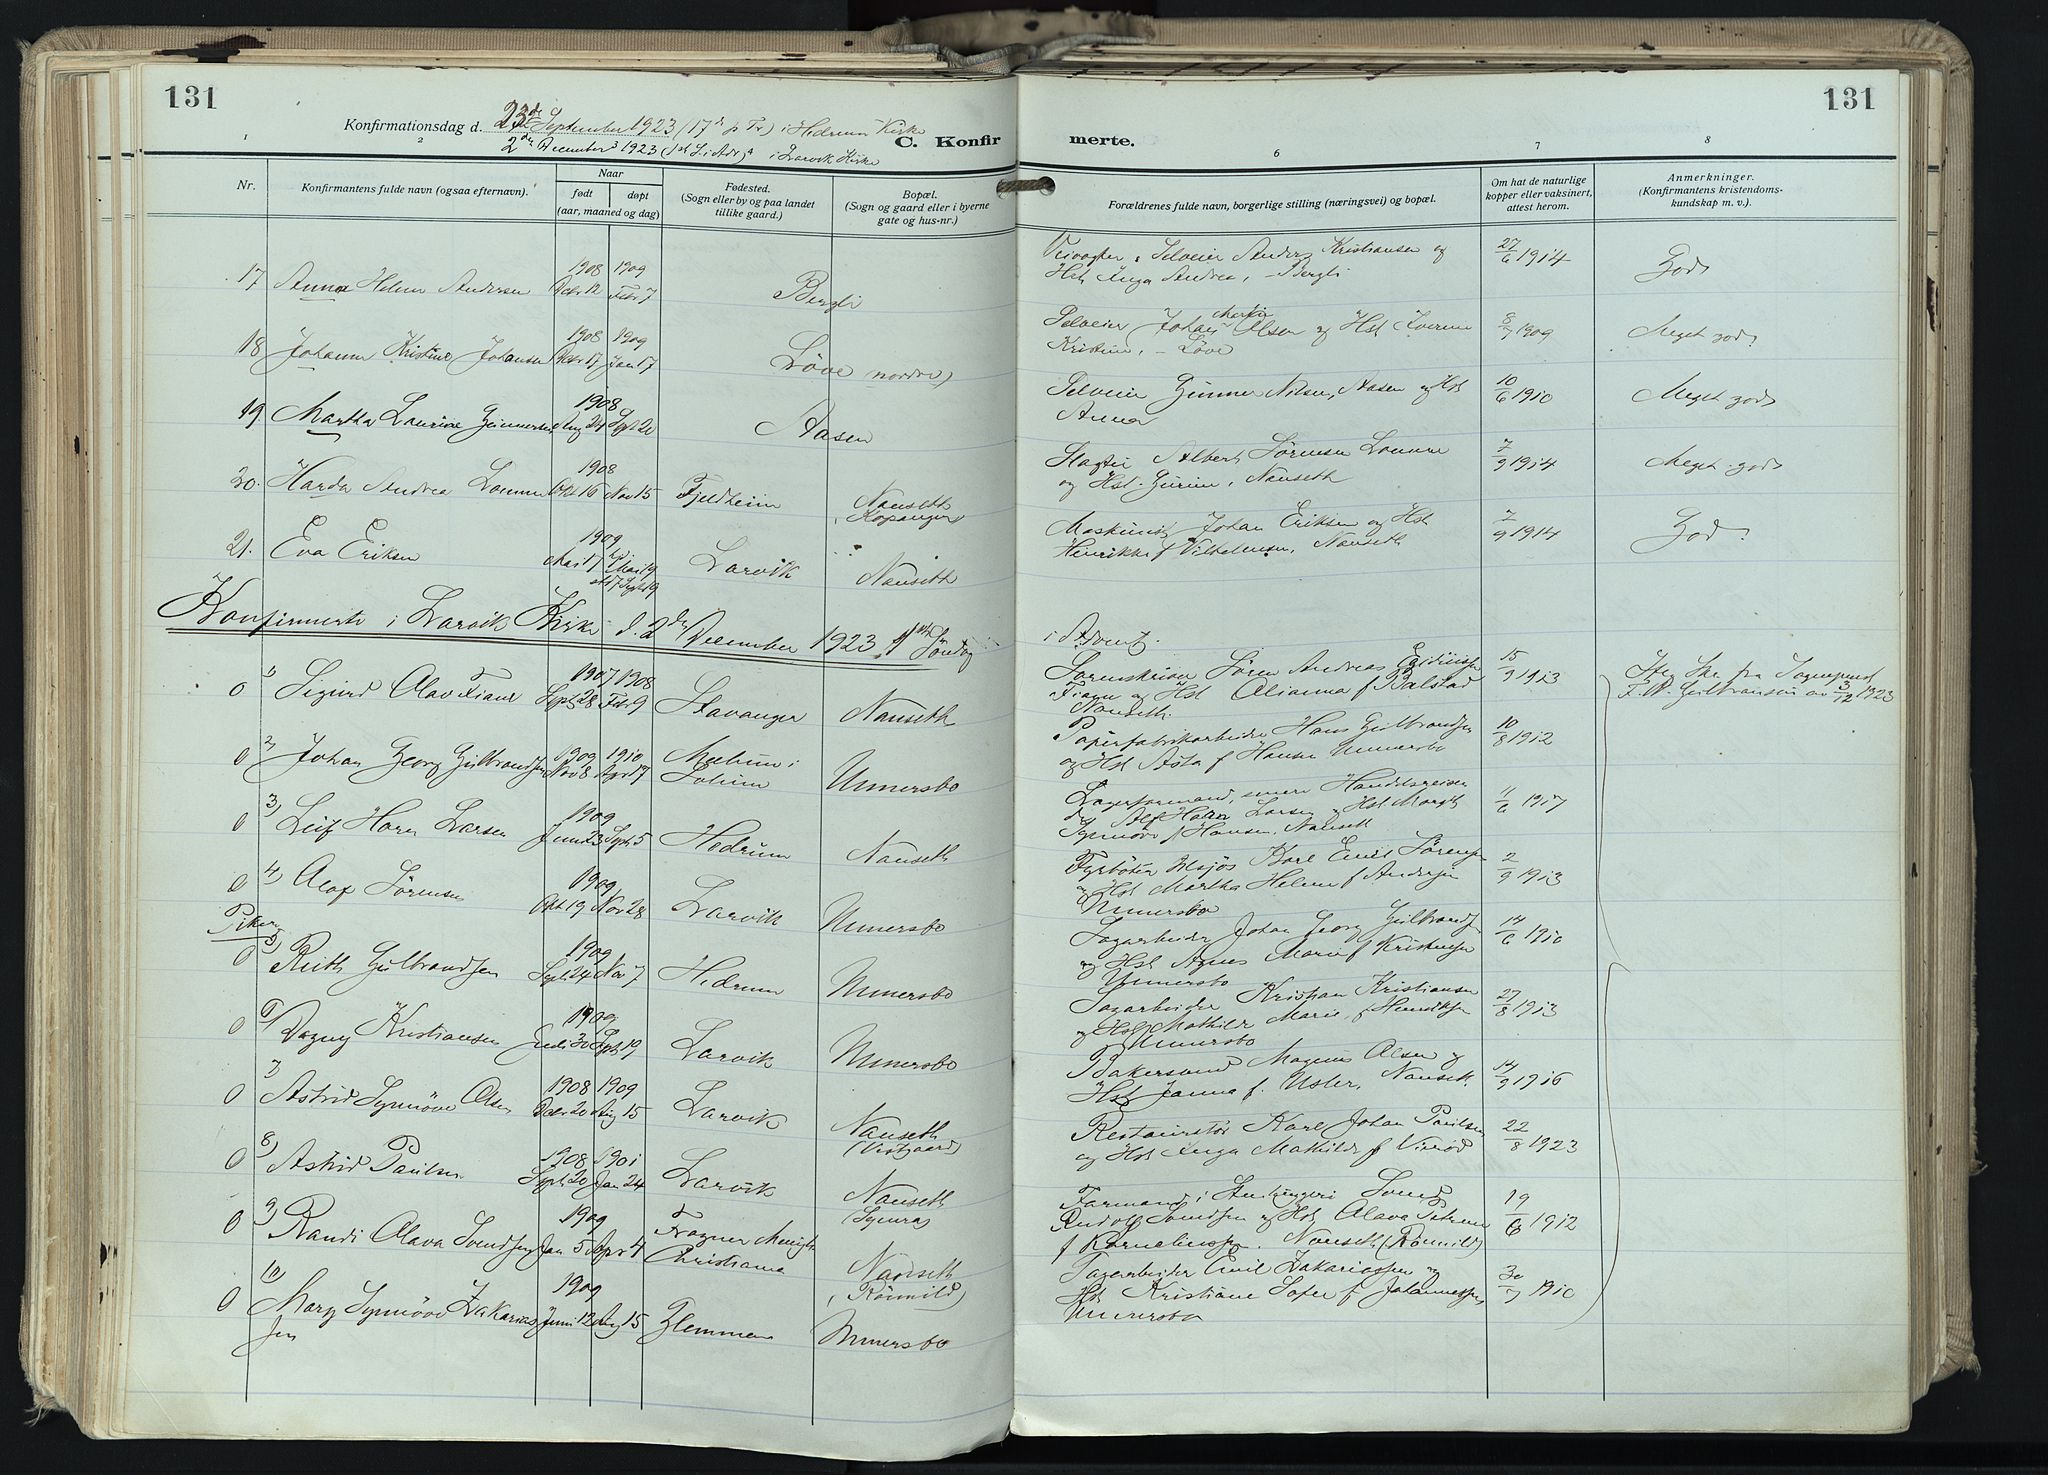 131
131
Konfirmationsdag d. 23de September 1923 (17de p Tr) i Hedrum Kirke
2de December 1923 (1st S. i Adv) i Larvik Kirke
C. Konfirmerte.
1 2 6 7 8
Nr.
Konfirmantens fulde navn (ogsaa efternavn).
Naar
født døpt
(aar, maaned og dag)
Fødested.
(Sogn eller by og paa landet
tillike gaard.)
Bopæl.
(Sogn og gaard eller i byerne
gate og hus-nr.)
Forældrenes fulde navn, borgerlige stilling (næringsvei) og bopæl.
Om hat de naturlige
kopper eller vaksinert,
attest herom.
Anmerkninger.
(Konfirmantens kristendoms-
kundskap m. v.).
1908 1909
17 Anna Helene Andersen Decbr 12 Febr 7 Bergli
Selveier Anders Kristiansen og
Hst Inga Andrea, - Bergli
27/6 1914 God
1908 1909
18 Johanne Kristine Johansen Decbr 17 Jan 17 Löve nordre
Selveier Johan Martin Olsen og Hst
Kristine, - Löve
8/7 1909 Meget god
1908
19 Martha Laurine Gunnersen Aug 24 Sept 20 Aasen
Selveier Gunner Nilsen, Aasen og Hst
Anna
10/6 1910 Meget god
1908
20. Harda Andrea Okt 16 Nov 15 Fjeldheim Nanseth
Kopangen
Albert Sörensen
og Hst. Gurine, Nanseth
7/9 1914 Meget god
1909
21. Eva Eriksen Mai 17 Mai 19 Larvik Nanseth
Sept 19
Maskinist Johan Eriksen og Hst
Henrikke f Vilhelmsen, Nanseth
7/9 1914 God.
Konfirmerte i Larvik Kirke d. 2den December 1923, 1ste Söndag
i Advent.
1907 1908
0 1) Sigurd Olav Fiane Sept 28 Febr 9 Stavanger Nanseth
Sorenskriver Sören Andreas
Fiane og Hst Alianna f Balstad
Nanseth.
15/9 1913
fra Sogneprest
F. W. Gulbransen av 3/12 1923
1909 1910
0 2) Johan Georg Gulbrandsen Nov 8 Apr 17 Unnersbo
Papirfabrikarbeider Hans Gulbrandsen
og Hst Asta f Hansen Unnersbo
10/8 1912
1909
0 3) Leif Horn Larsen Juni 23 Sept 5 Hedrum Nanseth
Lagerformand, senere Handelsreisen
de Alf Larsen og Hst Margit
Synnöve f Hansen, Nanseth
11/6 1917
1909
0 4) Olaf Sörensen Okt 19 Nov 28 Larvik Unnersbo
Fyrböter Karl Emil Sörensen
og Hst Martha Helene f Andersen
Unnersbo
2/9 1913
Piker
1909
0 5) Ruth Gulbrandsen Sept 24 Nov 7 Hedrum Unnersbo
Sagarbeider Johan Georg Gulbrandsen
og Hst Agnes Marie f Kristensen
Unnersbo
14/6 1910
1909
0 6) Dagny Kristiansen Juli 30 Sept 19 Larvik Unnersbo
Sagarbeider Kristian Kristiansen
og Hst Mathilde Marie f Henriksen
Unnersbo
27/8 1913
1908 1909
0 7) Astrid Synnöve Olsen Decbr 20 Aug 15 Larvik Nanseth
(Vestgaard)
Bakersvend Magnus Olsen og
Hst Janna f. Usler, Nanseth
14/9 1916
1908 1901
0 8) Astrid Paulsen Sept 20 Jan 24 Larvik Nanseth
(Synra)
Restauratör Karl Johan Paulsen
og Hst Inga Mathilde f Virröd
22/8 1923
1909
0 9) Randi Olava Svendsen Jan 5 Apr 4 Fragner Menigh
Christiania Nanseth
(Rönnild)
Formand i
Rudolf Svendsen og Hst Olava Petrine
f Kornelinssen. Nanseth (Rönnild)
19/6 1912
1909
0 10) Mary Synnöve Zakarias Juni 12 Aug 15 Glemmen Unnersbo
sen
Sagarbeider Emil Zakariassen og
Hst Kristiane Sofie f Johannessen
Unnersbo
30/7 1910